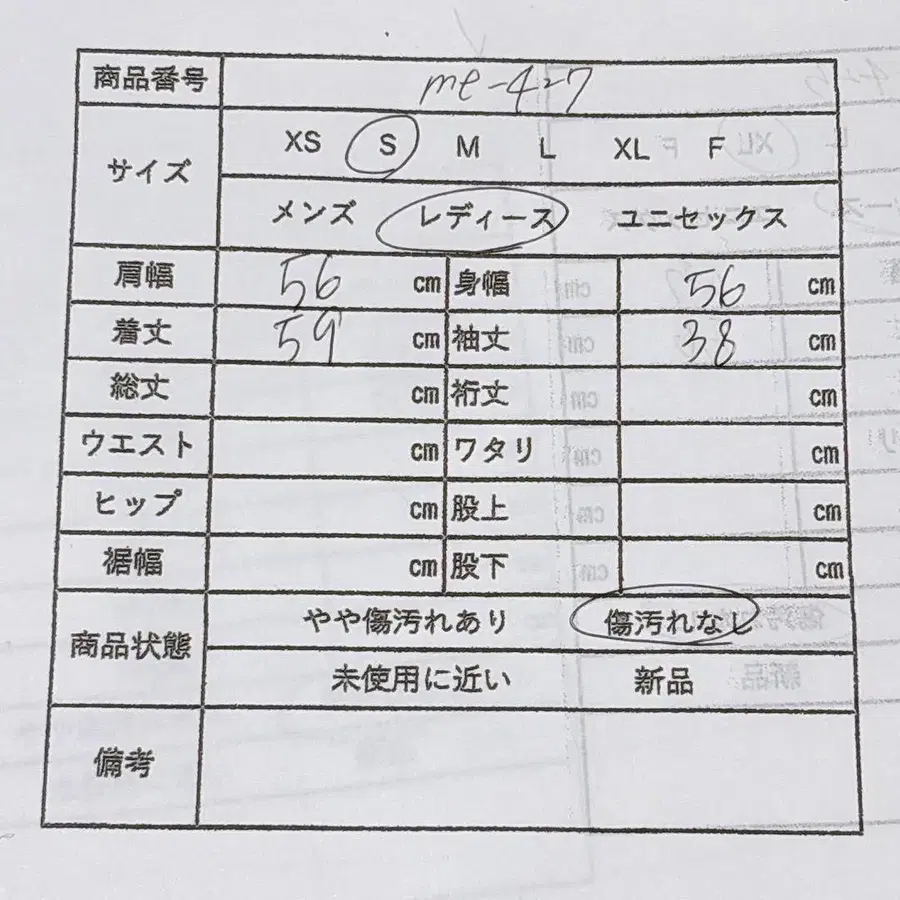 商品番号 me-427
サイズ XS S M L XL F
メンズ レディース ユニセックス
肩幅 56 cm 身幅 56 cm
着丈 59 cm 袖丈 38 cm
総丈 cm 裄丈 cm
ウエスト cm ワタリ cm
ヒップ cm 股上 cm
裾幅 cm 股下 cm
商品状態 やや傷汚れあり 傷汚れなし
未使用に近い 新品
備考